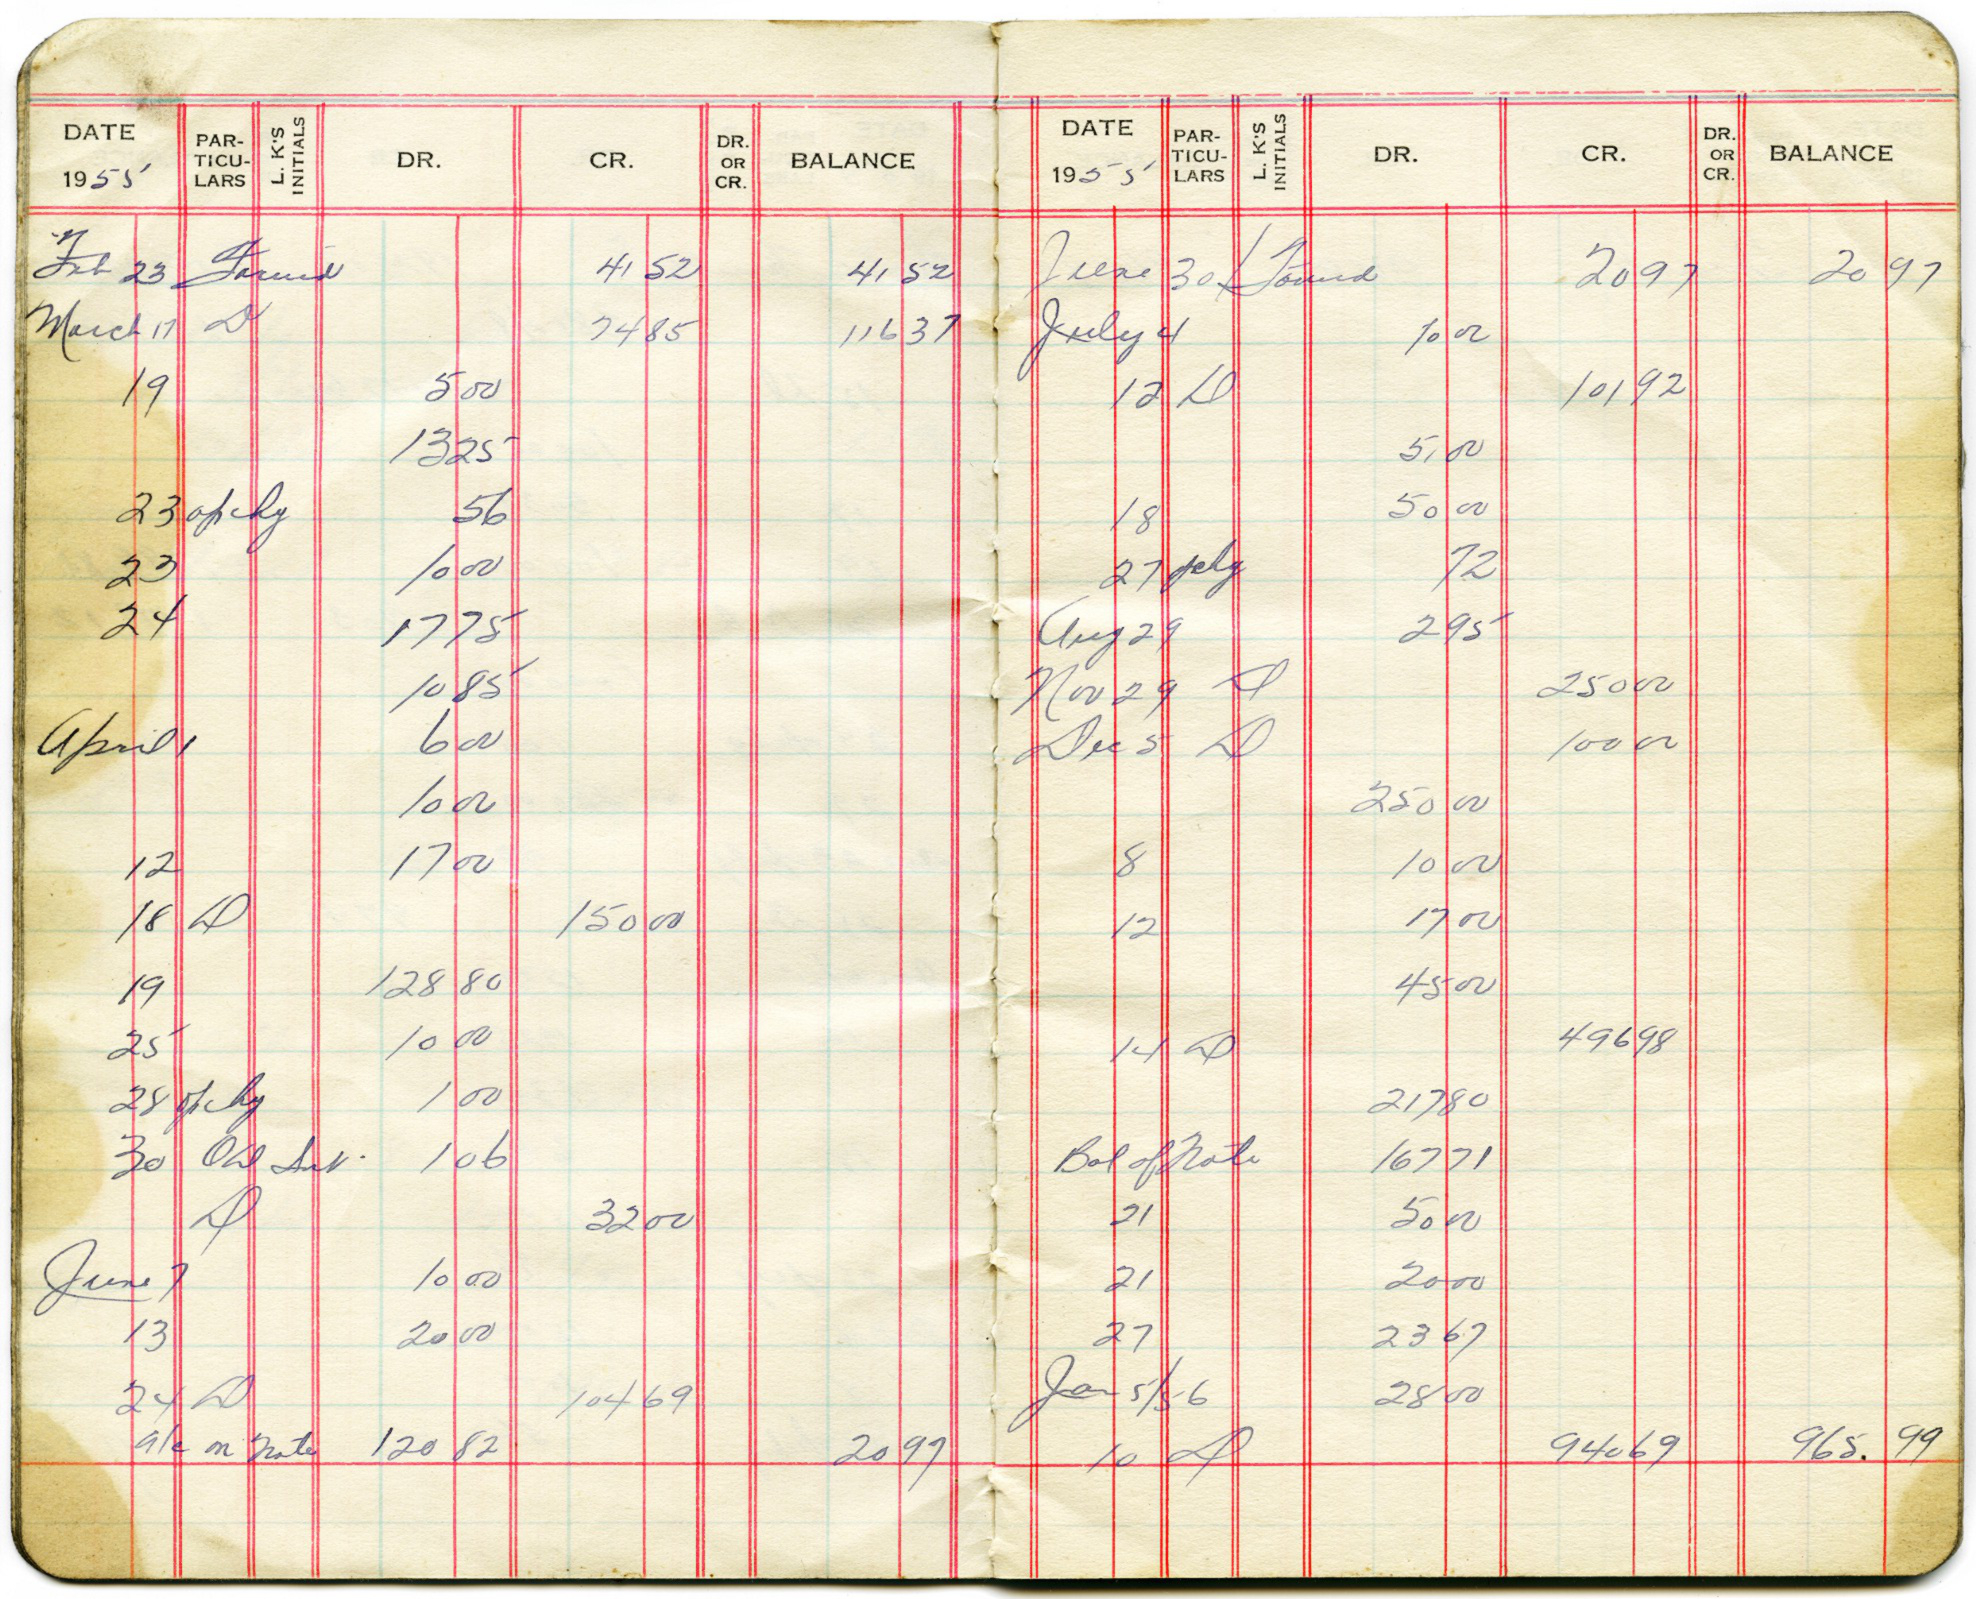 DATE 1955 PARTICULARS L. K'S INITIALS DR. CR. DR. OR CR. BALANCE
Feb 23 Forwd 41 52 41 52
March 17 D 74 85 116 37
19 5 00
13 25
23 op chg 56
23 10 00
24 17 75
10 85
April 1 6 00
10 00
12 17 00
18 D 150 00
19 128 80
25 10 00
28 op chg 1 00
30 Int. 1 06
D 32 00
June 7 10 00
13 20 00
24 D 104 69
a/c on Note 120 82 20 97
DATE 1955 PARTICULARS L. K'S INITIALS DR. CR. DR. OR CR. BALANCE
June 30 Forwd 20 97 20 97
July 4 10 00
12 D 101 92
5 00
18 50 00
27 chg 72
Aug 29 2 95
Nov 29 D 250 00
Dec 5 D 100 00
250 00
8 10 00
12 17 00
45 00
14 D 496 98
217 80
Bal of Note 167 71
21 50 00
21 20 00
27 23 67
Jan 5/56 28 00
10 D 940 69 965. 99